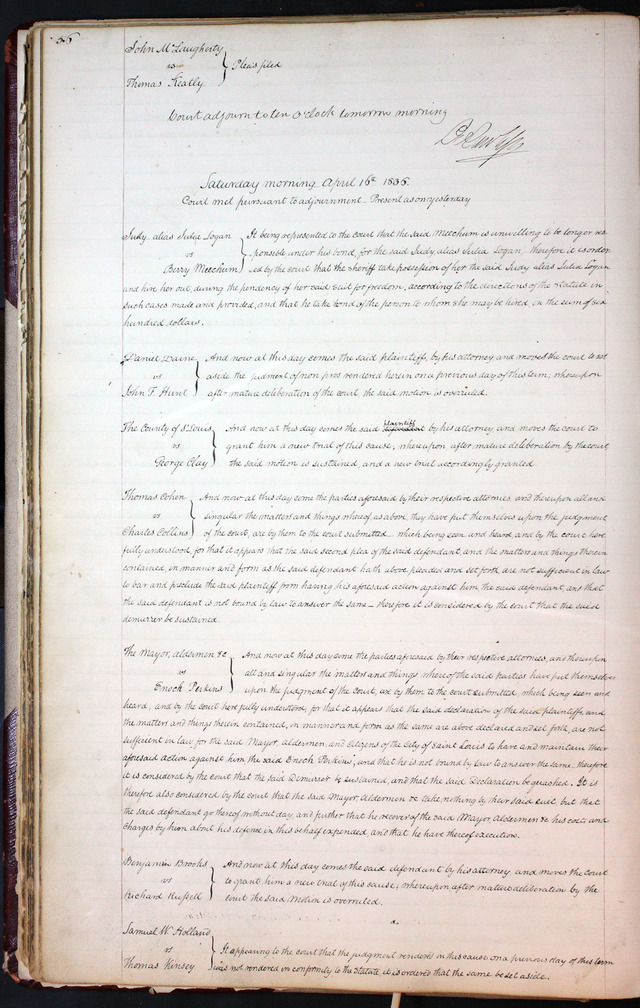 56
John McLaugherty
vs } Pleas filed
Thomas Keatly
Court adjourn to ten o'clock tomorrow morning
Saturday morning April 16th 1836.
Court met pursuant to adjournment Present as on yesterday
Judy alias Julia Logan } It being represented to the court that the said Meechum is unwilling to be longer res
vs ponsible under his bond, for the said Judy, alias Julia Logan, therefore it is order
Berry Meechum ed by the court that the sheriff take possession of her the said Judy alias Julia Logan
and hire her out, during the pendency of her said suit for freedom, according to the directions of the Statute in
such cases made and provided, and that he take bond of the person to whom she may be hired, in the sum of six
hundred dollars.
Daniel Paine } And now at this day comes the said plaintiff, by his attorney, and moves the court to set
vs aside the judgment of non pros rendered herein on a previous day of this term; whereupon
John F. Hunt after mature deliberation of the court, the said motion is overruled.
The County of St Louis } And now at this day comes the said plaintiff by his attorney, and moves the court to
vs grant him a new trial of this cause, whereupon, after mature deliberation by the court
George Clay the said motion is sustained, and a new trial accordingly granted.
Thomas Cohen } And now at this day come the parties aforesaid by their respective attornies, and thereupon all and
vs singular the matters and things whereof, as above, they have put themselves upon the judgment
Charles Collins of the court, are by them to the court submitted which being seen and heard, and by the court here
fully understood, for that it appears that the said second plea of the said defendant, and the matters and things therein
contained, in manner and form as the said defendant hath above pleaded and set forth, are not sufficient in law
to bar and preclude the said plaintiff from having his aforesaid action against him the said defendant, and that
the said defendant is not bound by law to answer the same – therefore it is considered by the court that the said
demurrer be sustained.
The Mayor, aldermen &c } And now at this day come the parties aforesaid by their respective attornies, and thereupon
vs all and singular the matters and things whereof the said parties have put themselves
Enoch Perkins upon the judgment of the court, are by them to the court submitted, which being seen and
heard, and by the court here fully understood, for that it appears that the said declaration of the said plaintiffs, and
the matters and things therein contained, in manner and form as the same are above declared and set forth, are not
sufficient in law for the said Mayor, aldermen, and citizens of the city of Saint Louis to have and maintain their
aforesaid action against him the said Enoch Perkins, and that he is not bound by law to answer the same, therefore
it is considered by the court that the said Demurrer be sustained, and that the said Declaration be quashed. It is
therefore also considered by the court that the said Mayor Aldermen &c take nothing by their said suit, but that
the said defendant go thereof without day, and further that he recover of the said Mayor Aldermen &c his costs and
charges by him about his defence in this behalf expended, and that he have thereof execution.
Benjamin Brooks } And now at this day comes the said defendant by his attorney and moves the court
vs to grant him a new trial of this cause, whereupon after mature deliberation by the
Richard Russell court the said Motion is overruled.
Samuel W Holland
vs } It appearing to the court that the judgment rendered in this cause on a previous day of this term
Thomas Kinsey was not rendered in conformity to the Statute, it is ordered that the same be set aside.